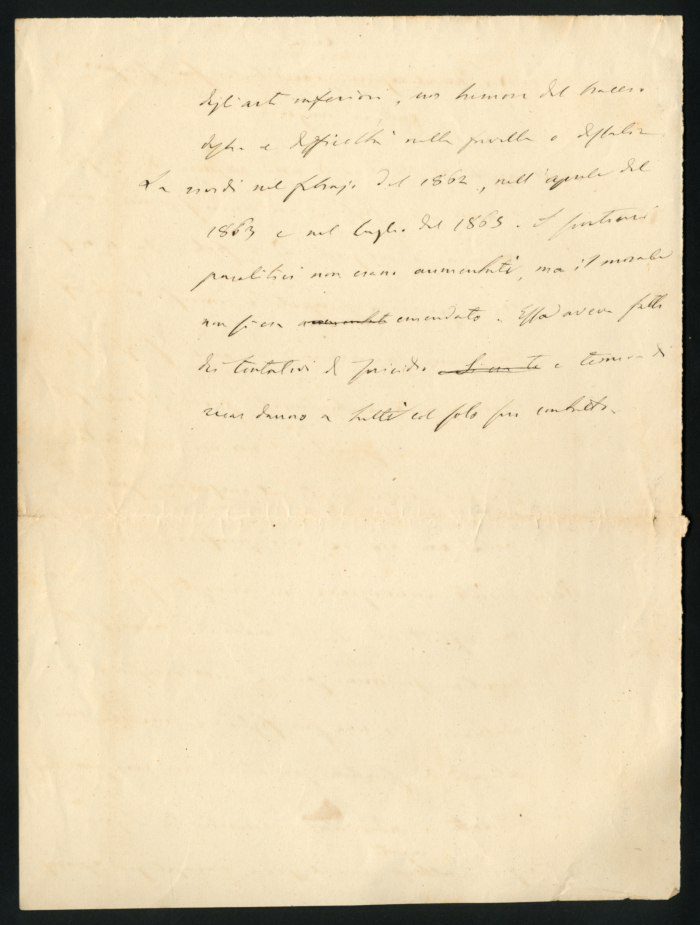 degli arti inferiori, con tremore del braccio
destro e difficoltà nella favella e
La rividi nel febrajo del 1862, nell'aprile del
1863 e nel luglio del 1865. I fenomeni
paralitici non erano aumentati, ma il morale
non si era emendato. Essa aveva fatto
dei tentativi di suicidio e temeva di
recar danno a tutti col solo suo contatto.